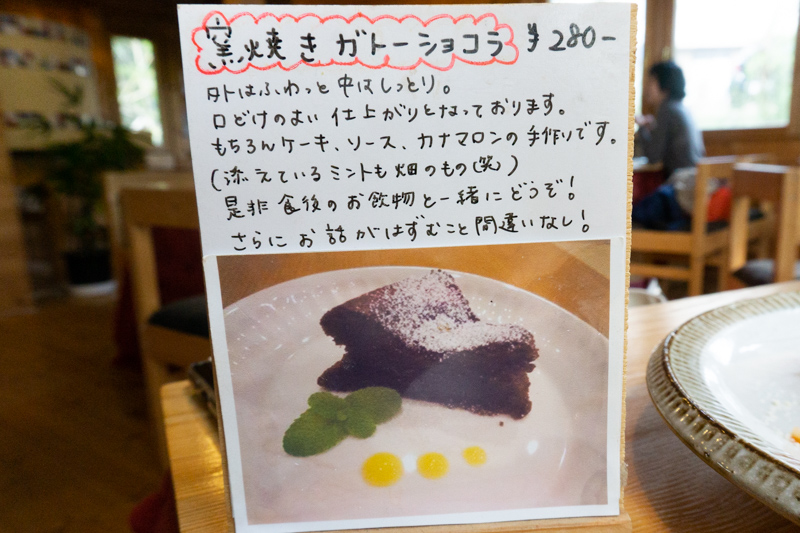 窯焼きガトーショコラ ¥280-
外はふわっと中はしっとり。
口どけのよい仕上がりとなっております。
もちろんケーキ、ソース、カナマロンの手作りです。
(添えているミントも畑のもの(笑)
是非食後のお飲物と一緒にどうぞ!
さらにお話がはずむこと間違いなし!